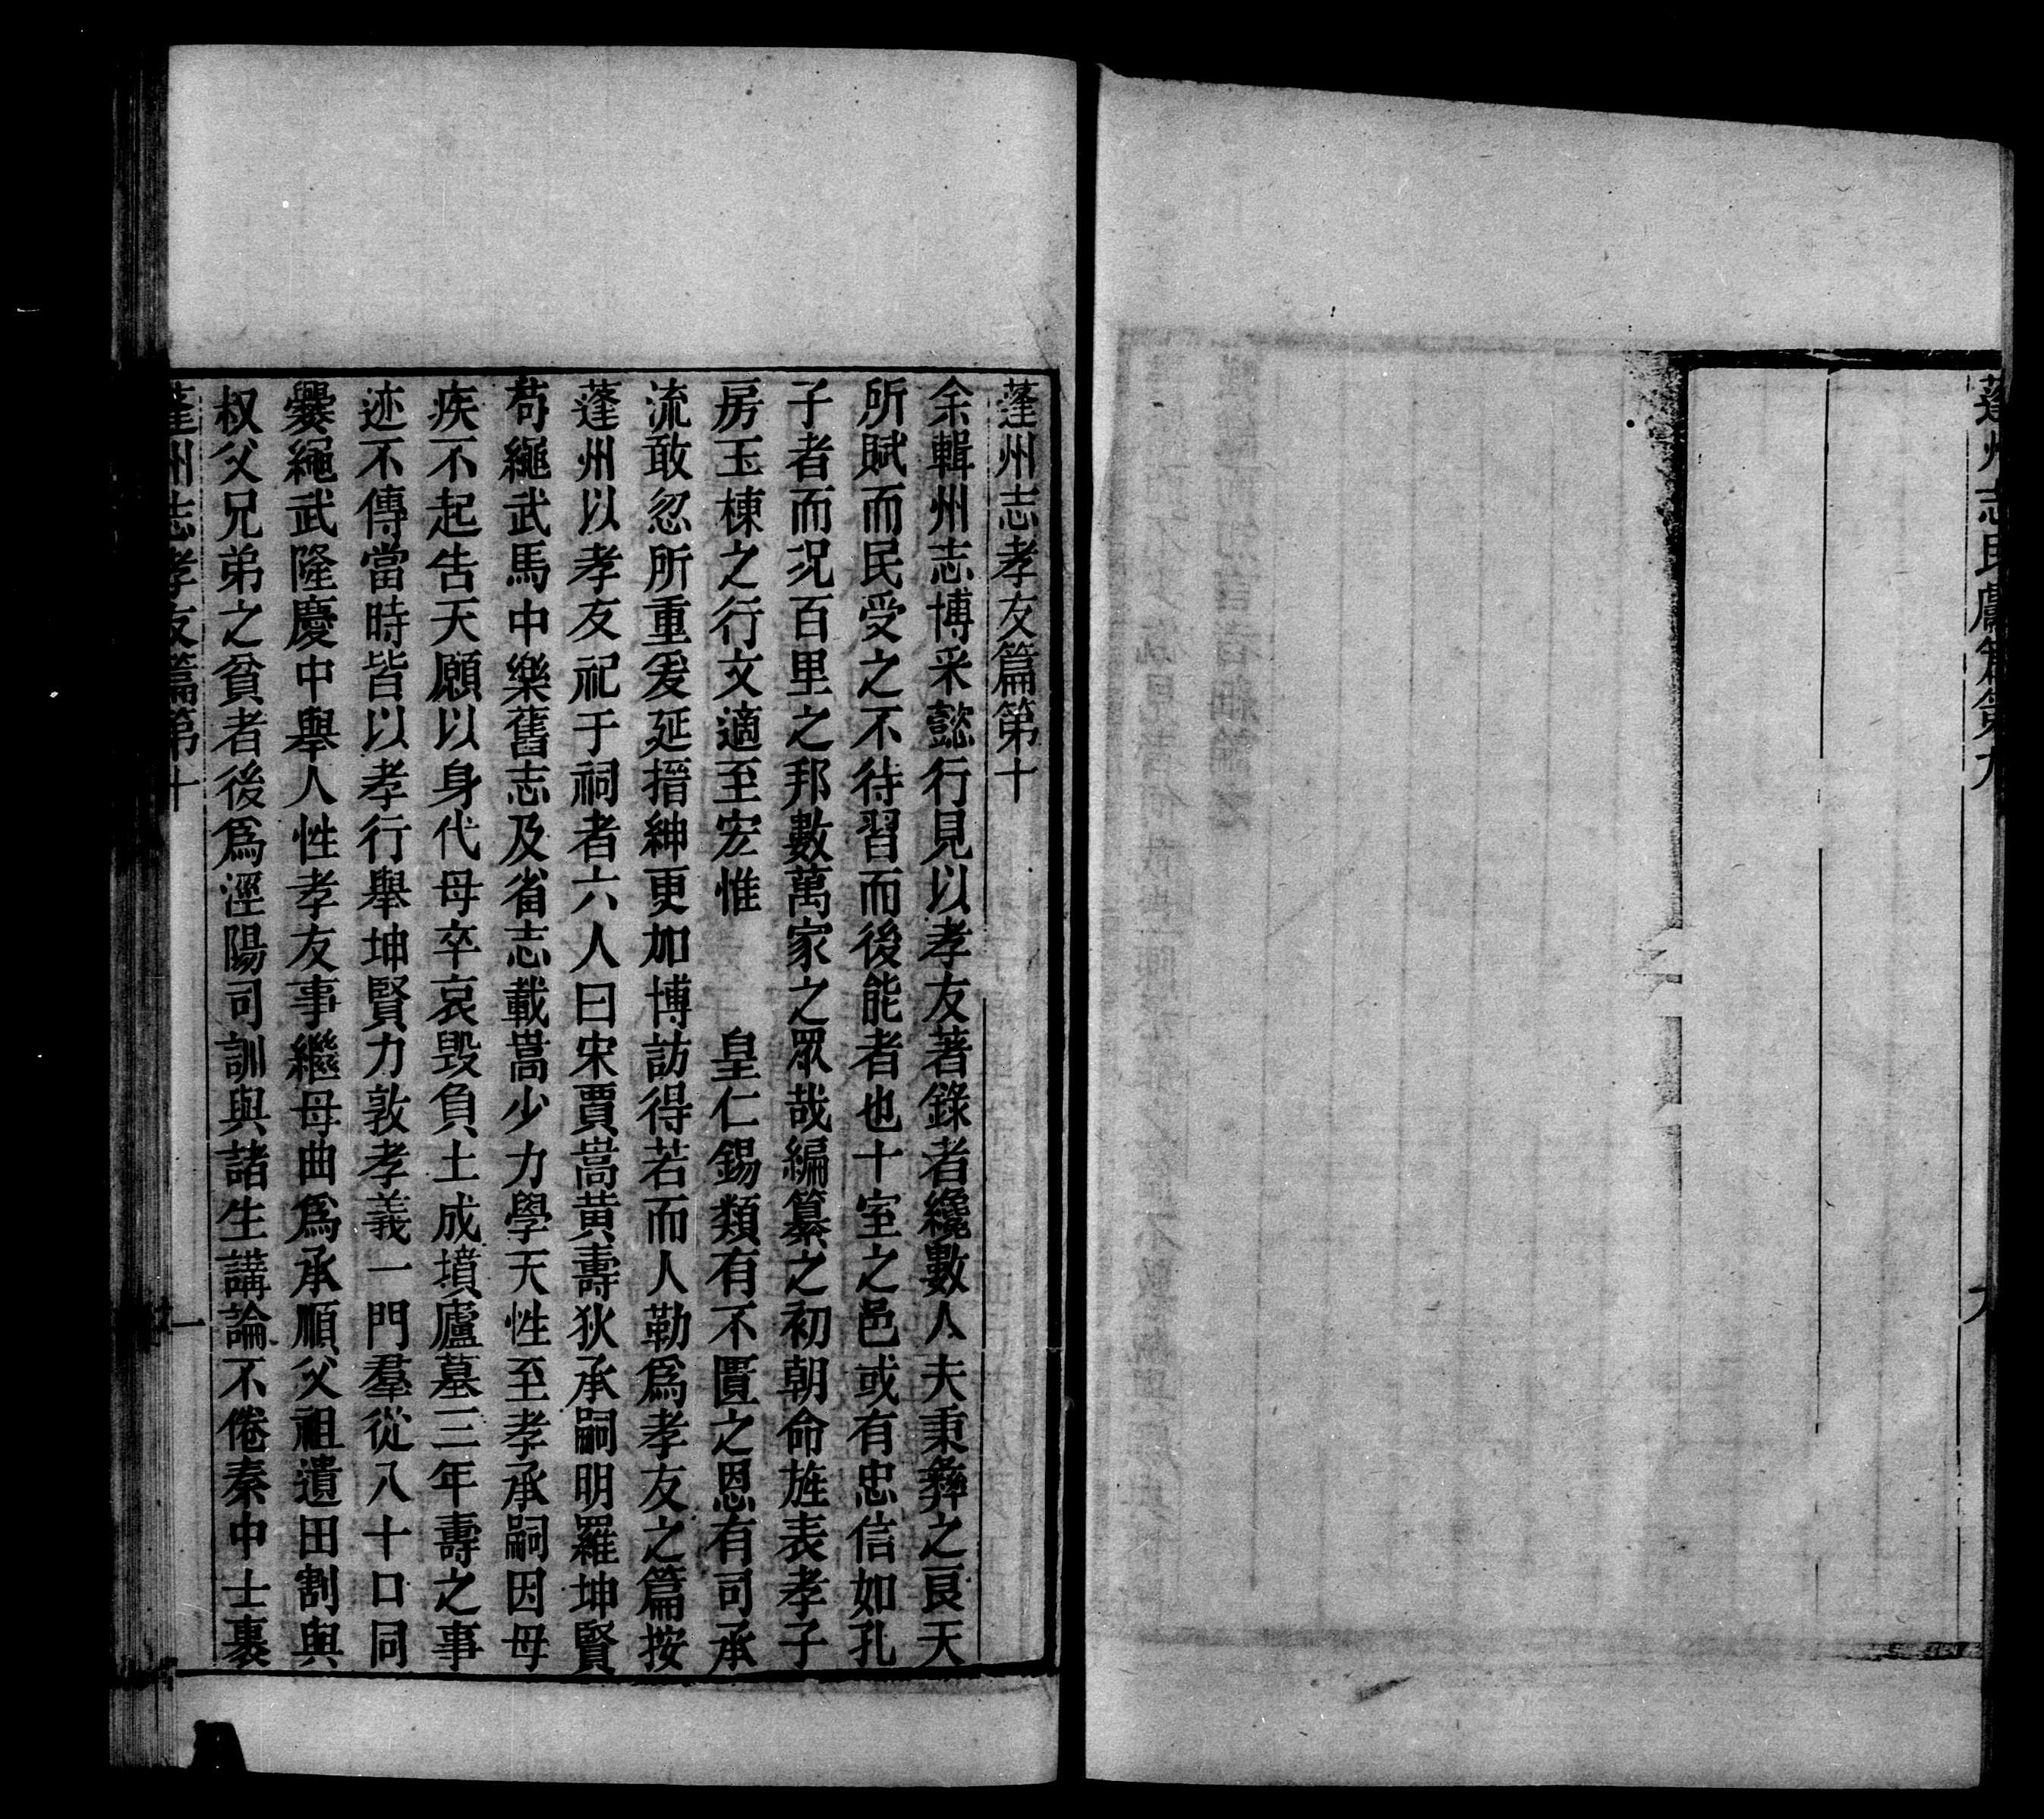 蓬州志民獻篇第九
九
蓬州志孝友篇第十
余輯州志博采懿行見以孝友著錄者纔數人夫秉彝之良天
所賦而民受之不待習而後能者也十室之邑或有忠信如孔
子者而況百里之邦數萬家之眾哉編纂之初朝命旌表孝子
房玉棟之行文適至宏惟 皇仁錫類有不匱之恩有司承
流敢忽所重爰延搢紳更加博訪得若而人勒爲孝友之篇按
蓬州以孝友祀于祠者六人曰宋賈嵩黃壽狄承嗣明羅坤賢
苟繩武馬中樂舊志及省志載嵩少力學天性至孝承嗣因母
疾不起告天願以身代母卒哀毀負土成墳廬墓三年壽之事
迹不傳當時皆以孝行舉坤賢力敦孝義一門羣從八十口同
爨繩武隆慶中舉人性孝友事繼母曲爲承順父祖遺田割與
叔父兄弟之貧者後爲涇陽司訓與諸生講論不倦秦中士裹
蓬州志孝友篇第十
一